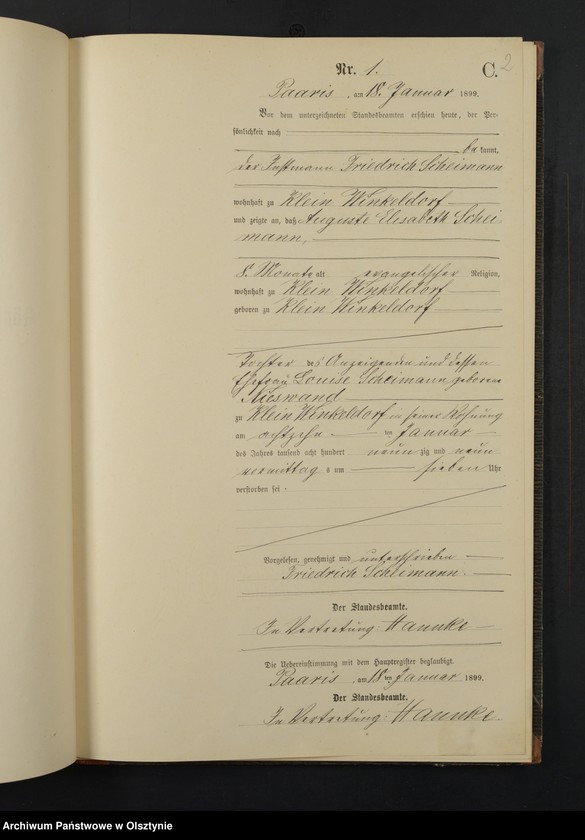 2
Nr. 1. C.
Paaris, am 18. Januar 1899.
Vor dem unterzeichneten Standesbeamten erschien heute, der Per-
sönlichkeit nach
bekannt,
der Instmann Friedrich Scheimann
wohnhaft zu Klein Winkeldorf
und zeigte an, daß Auguste Elisabeth Schei-
mann,
8 Monate alt evangelischer Religion,
wohnhaft zu Klein Winkeldorf
geboren zu Klein Winkeldorf
Tochter des Anzeigenden und dessen
Ehefrau Louise Scheimann geborene
zu Klein Winkeldorf in seiner Wohnung
am achtzehnten Januar
des Jahres tausend acht hundert neunzig und neun
vormittags um sieben Uhr
verstorben sei.
Vorgelesen, genehmigt und unterschrieben
Friedrich Scheimann.
Der Standesbeamte.
In Vertretung: Hannke
Die Uebereinstimmung mit dem Hauptregister beglaubigt.
Paaris, am 18ten Januar 1899.
Der Standesbeamte.
In Vertretung: Hannke.
Archiwum Państwowe w Olsztynie